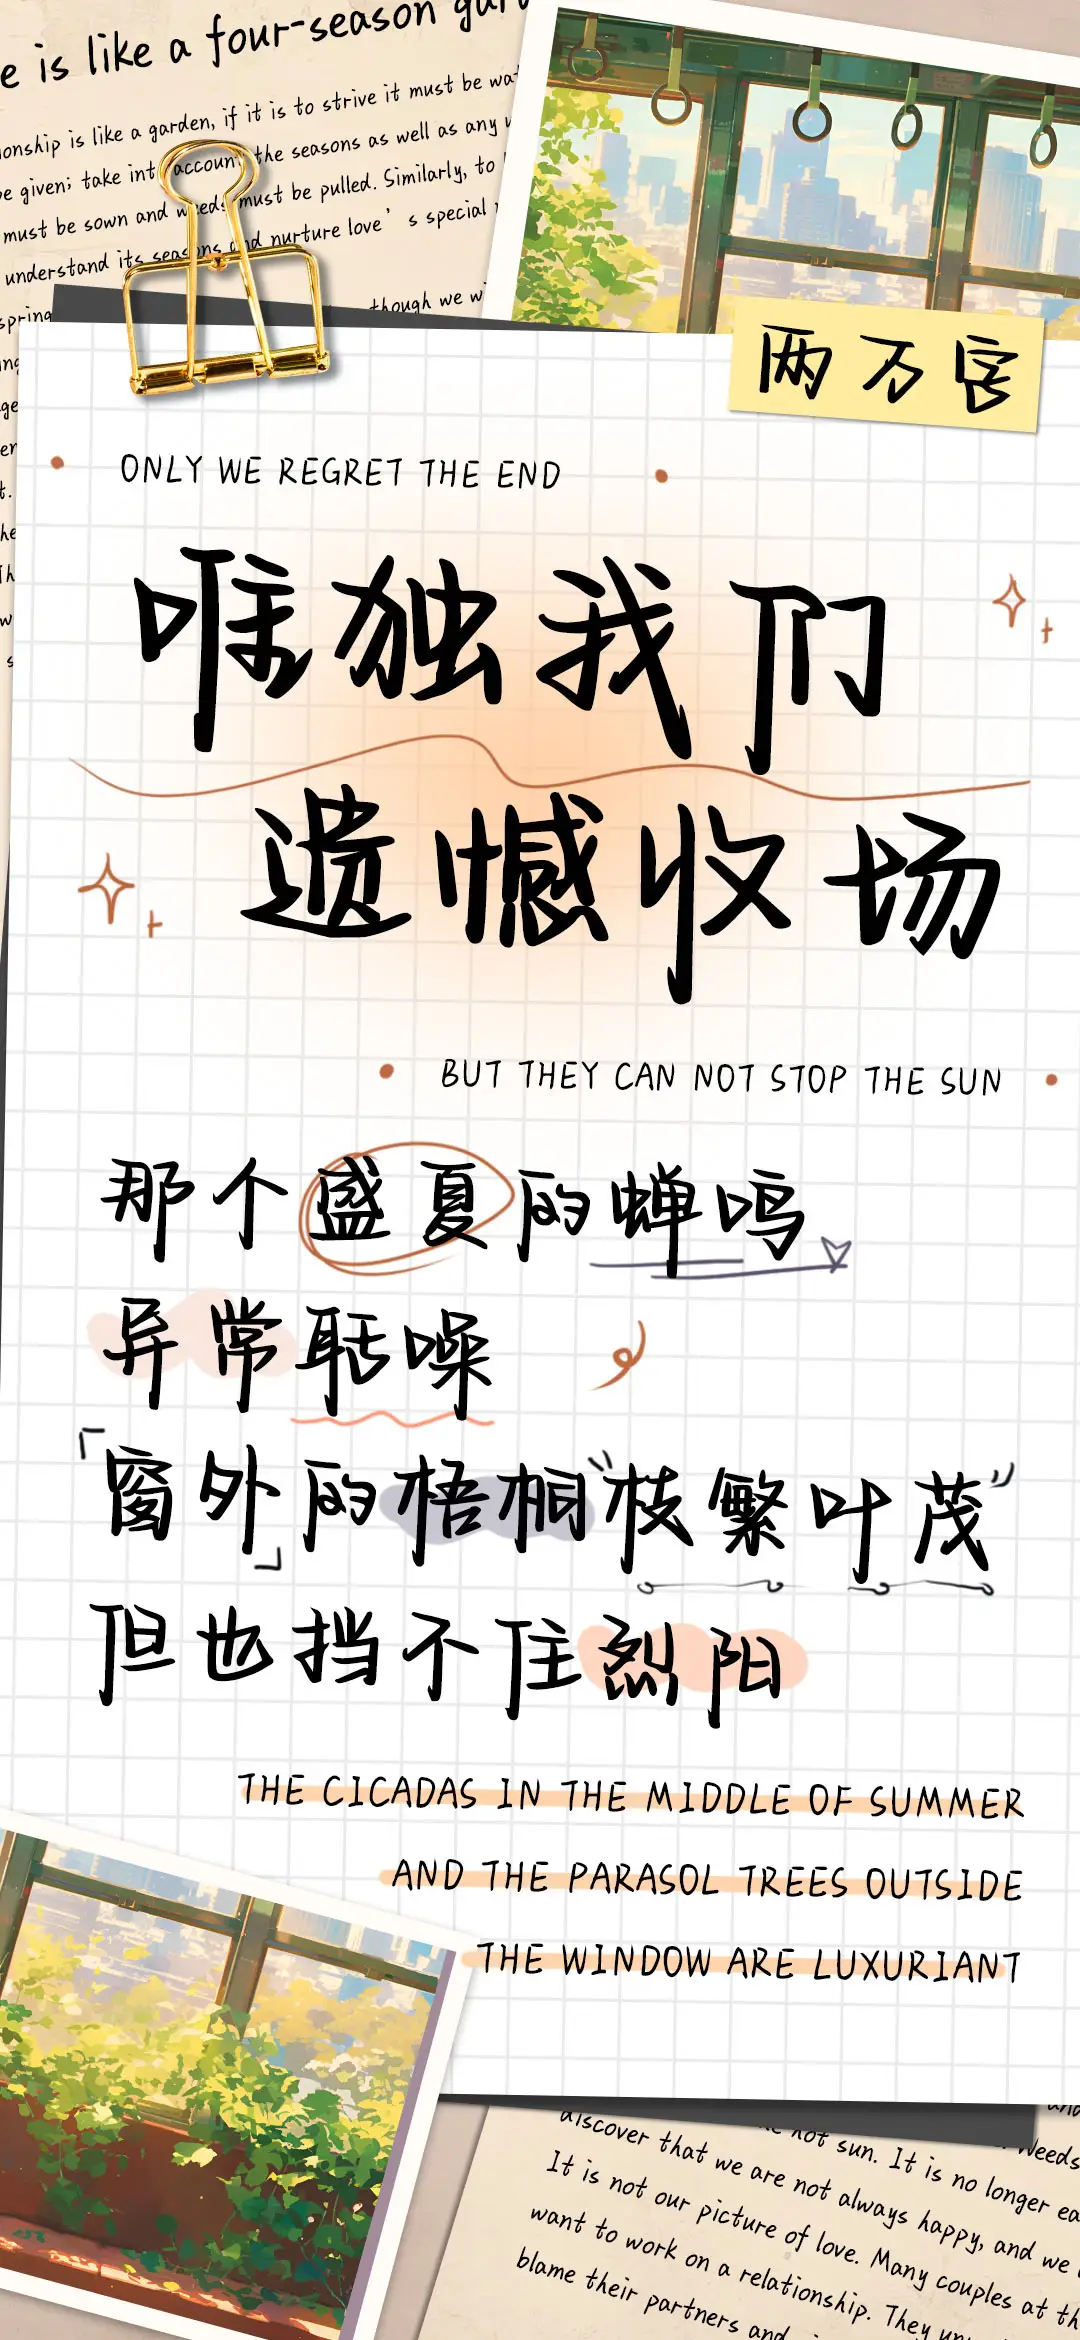 e is like a four-season
onship is like a garden, if it is to strive it must be
be given; take into account the seasons as well as any
must be sown and weeds must be pulled. Similarly, to
understand its seasons and nurture love's special
spring
though we
两万字
ONLY WE REGRET THE END
唯独我们
遗憾收场
BUT THEY CAN NOT STOP THE SUN
那个盛夏的蝉鸣
异常聒噪
「窗外」的梧桐“枝繁叶茂”
但也挡不住烈阳
THE CICADAS IN THE MIDDLE OF SUMMER
AND THE PARASOL TREES OUTSIDE
THE WINDOW ARE LUXURIANT
weeds
not sun. It is no longer ea
discover that we are not always happy, and we
It is not our picture of love. Many couples at th
want to work on a relationship. They
blame their partners and